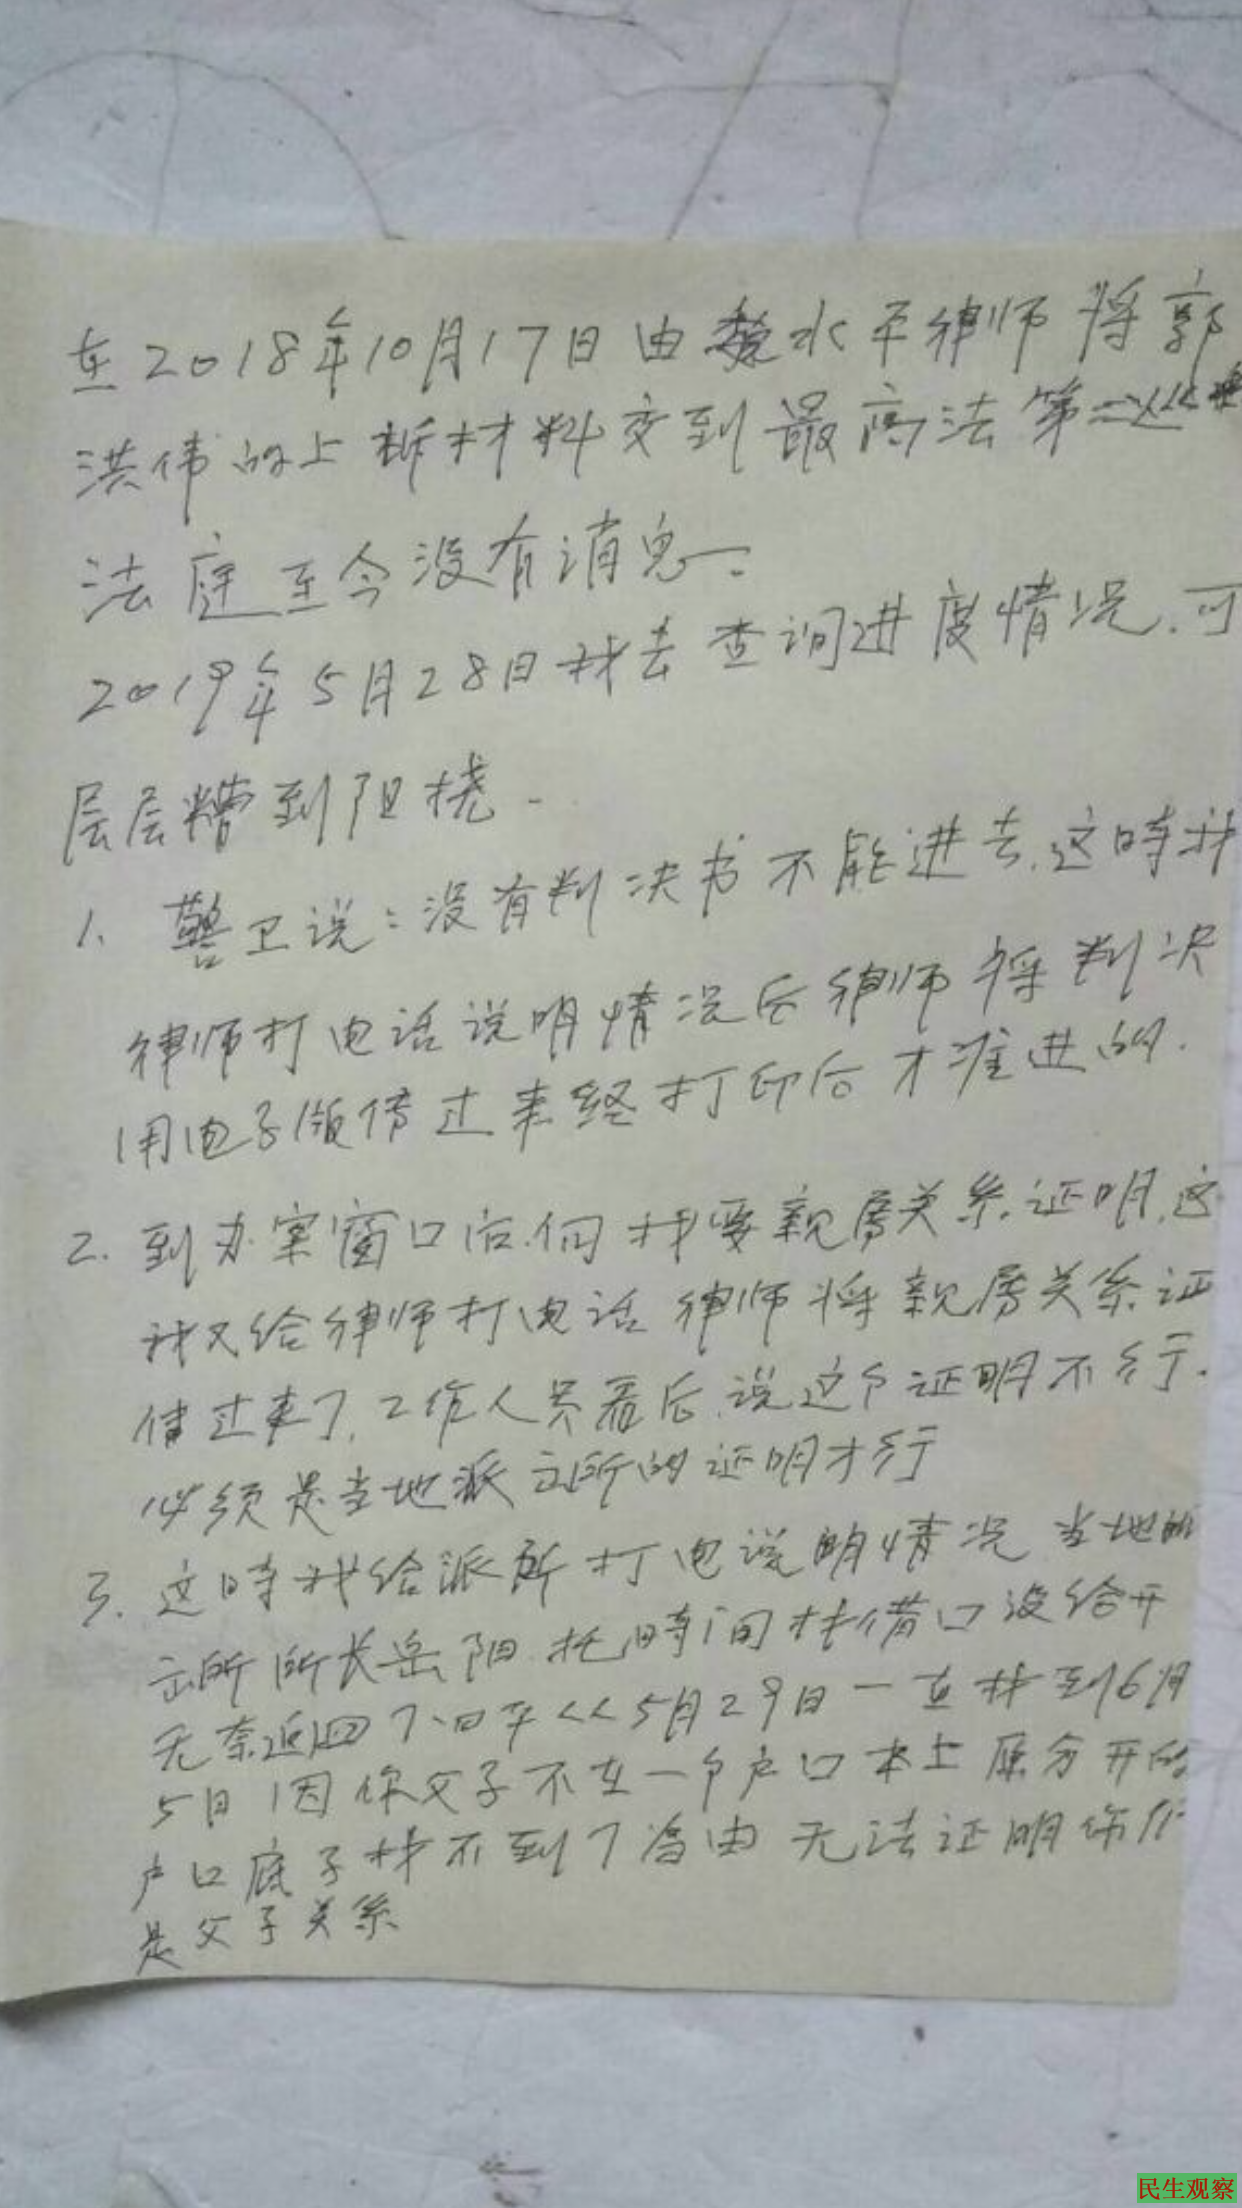 在2018年10月17日由 水平律师将郭
洪伟的上拆材料交到最高法第二巡
法庭至今没有消息一.
2019年5月28日我去查询进度情况,可
层层糟到阻挠-
1、警卫说:没有判决书不能进去,这時我
律师打电话说明情况后律师将判决
用电子版传过来经打印后才准进的.
2.到办案窗口后,问我要亲属关系证明,这
我又给律师打电话律师将亲属关系证
传过来了,工作人员看后,说这个证明不行.
必须是当地派立所的证明才行
3.这時我给派所打电说明情况当地
立所所长岳阳.托時间找借口没给开
无奈返回了四平<<5月29日一直找到6月
5日因你父子不在一个户口本上原分开的
户口底子找不到了为由无法证明你们
是父子关系
民生观察